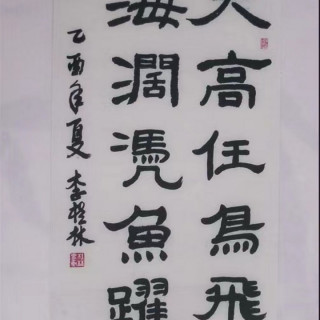 天高任鳥飛
海濶憑魚躍
乙酉年夏 李程林